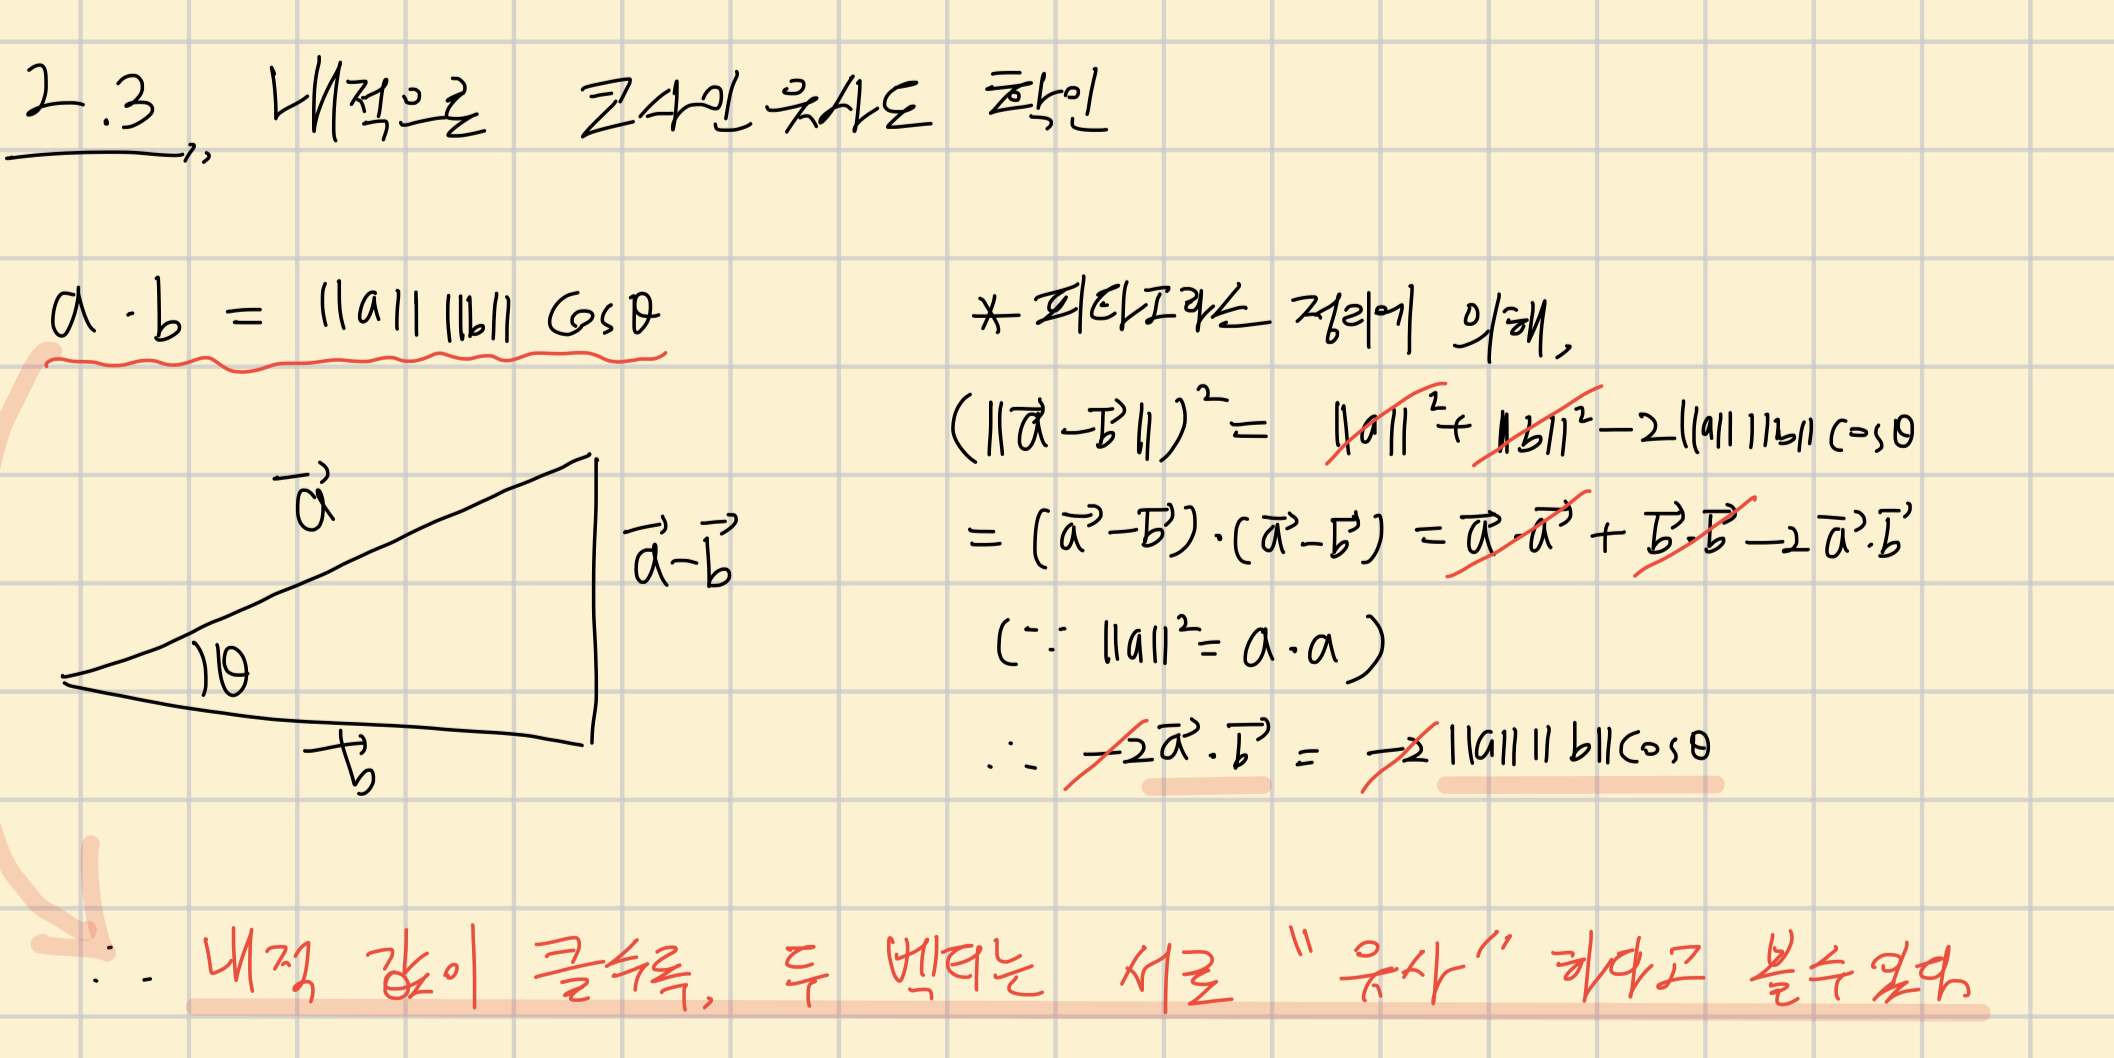 2.3 내적으로 코사인 유사도 확인
a · b = ||a|| ||b|| cosθ
a⃗
a⃗-b⃗
θ
b⃗
* 피타고라스 정리에 의해,
(||a⃗-b⃗||)² = ||a||² + ||b||² - 2||a|| ||b|| cosθ
= (a⃗-b⃗)·(a⃗-b⃗) = a⃗·a⃗ + b⃗·b⃗ - 2a⃗·b⃗
(∵ ||a||² = a·a)
∴ -2a⃗·b⃗ = -2||a|| ||b|| cosθ
∴ 내적 값이 클수록, 두 벡터는 서로 "유사" 하다고 볼수있다